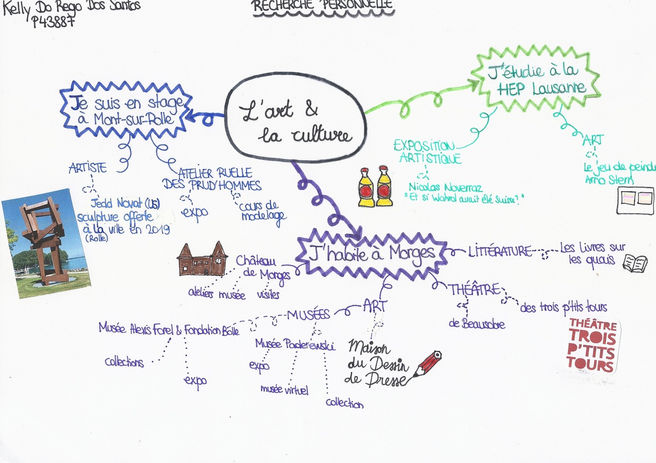 Kelly Do Rego Dos Santos
P43887
RECHERCHE PERSONNELLE
L'art &
la culture
Je suis en stage
à Mont-sur-Rolle
ARTISTE
Jedd Novat (US)
sculpture offerte
à la ville en 2019
(Rolle)
ATELIER RUELLE
DES PRUD'HOMMES
expo
cours de
modelage
J'étudie à la
HEP Lausanne
EXPOSITION
ARTISTIQUE
Nicolas Novernaz
"Et si Wahrol avait été suisse?"
ART
Le jeu de peindre
Arno Stern
J'habite à Morges
Château
de Morges
ateliers musée visites
LITTÉRATURE
Les Livres sur
les quais
THÉÂTRE
de Beausobre
des trois p'tits tours
THÉÂTRE
TROIS
P'TITS
TOURS
ART
Maison
du Dessin
de Presse
MUSÉES
Musée Alexis Forel & Fondation Bolle
collections
expo
Musée Paderewski
expo
musée virtuel
collection